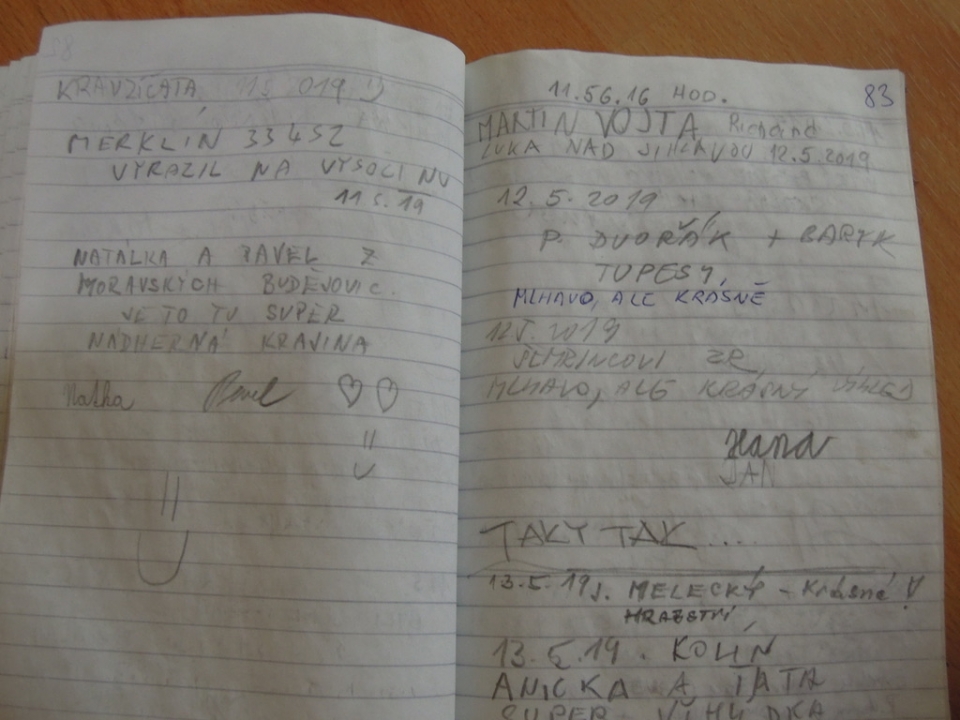 MERKLÍN 33452
VYRAZIL NA VYSOČINU
11.5.19
NATÁLKA A PAVEL Z
MORAVSKÝCH BUDĚJOVIC.
JE TO TU SUPER
NÁDHERNÁ KRAJINA
Pavel
83
11.56.16 HOD.
MARTIN VOJTA Richard
LUKA NAD JIHLAVOU 12.5.2019
12.5.2019
P. DVOŘÁK + BARYK
TUPESY,
MLHAVO, ALE KRÁSNĚ
12.5.2019
ZR
MLHAVO, ALE KRÁSNÝ VÝHLED
Hana
JAN
TAKY TAK....
13.5.19 J. MELECKÝ - Krásné!
13.5.19. KOLÍN
ANIČKA A TÁTA
SUPER VÝHLÍDKA